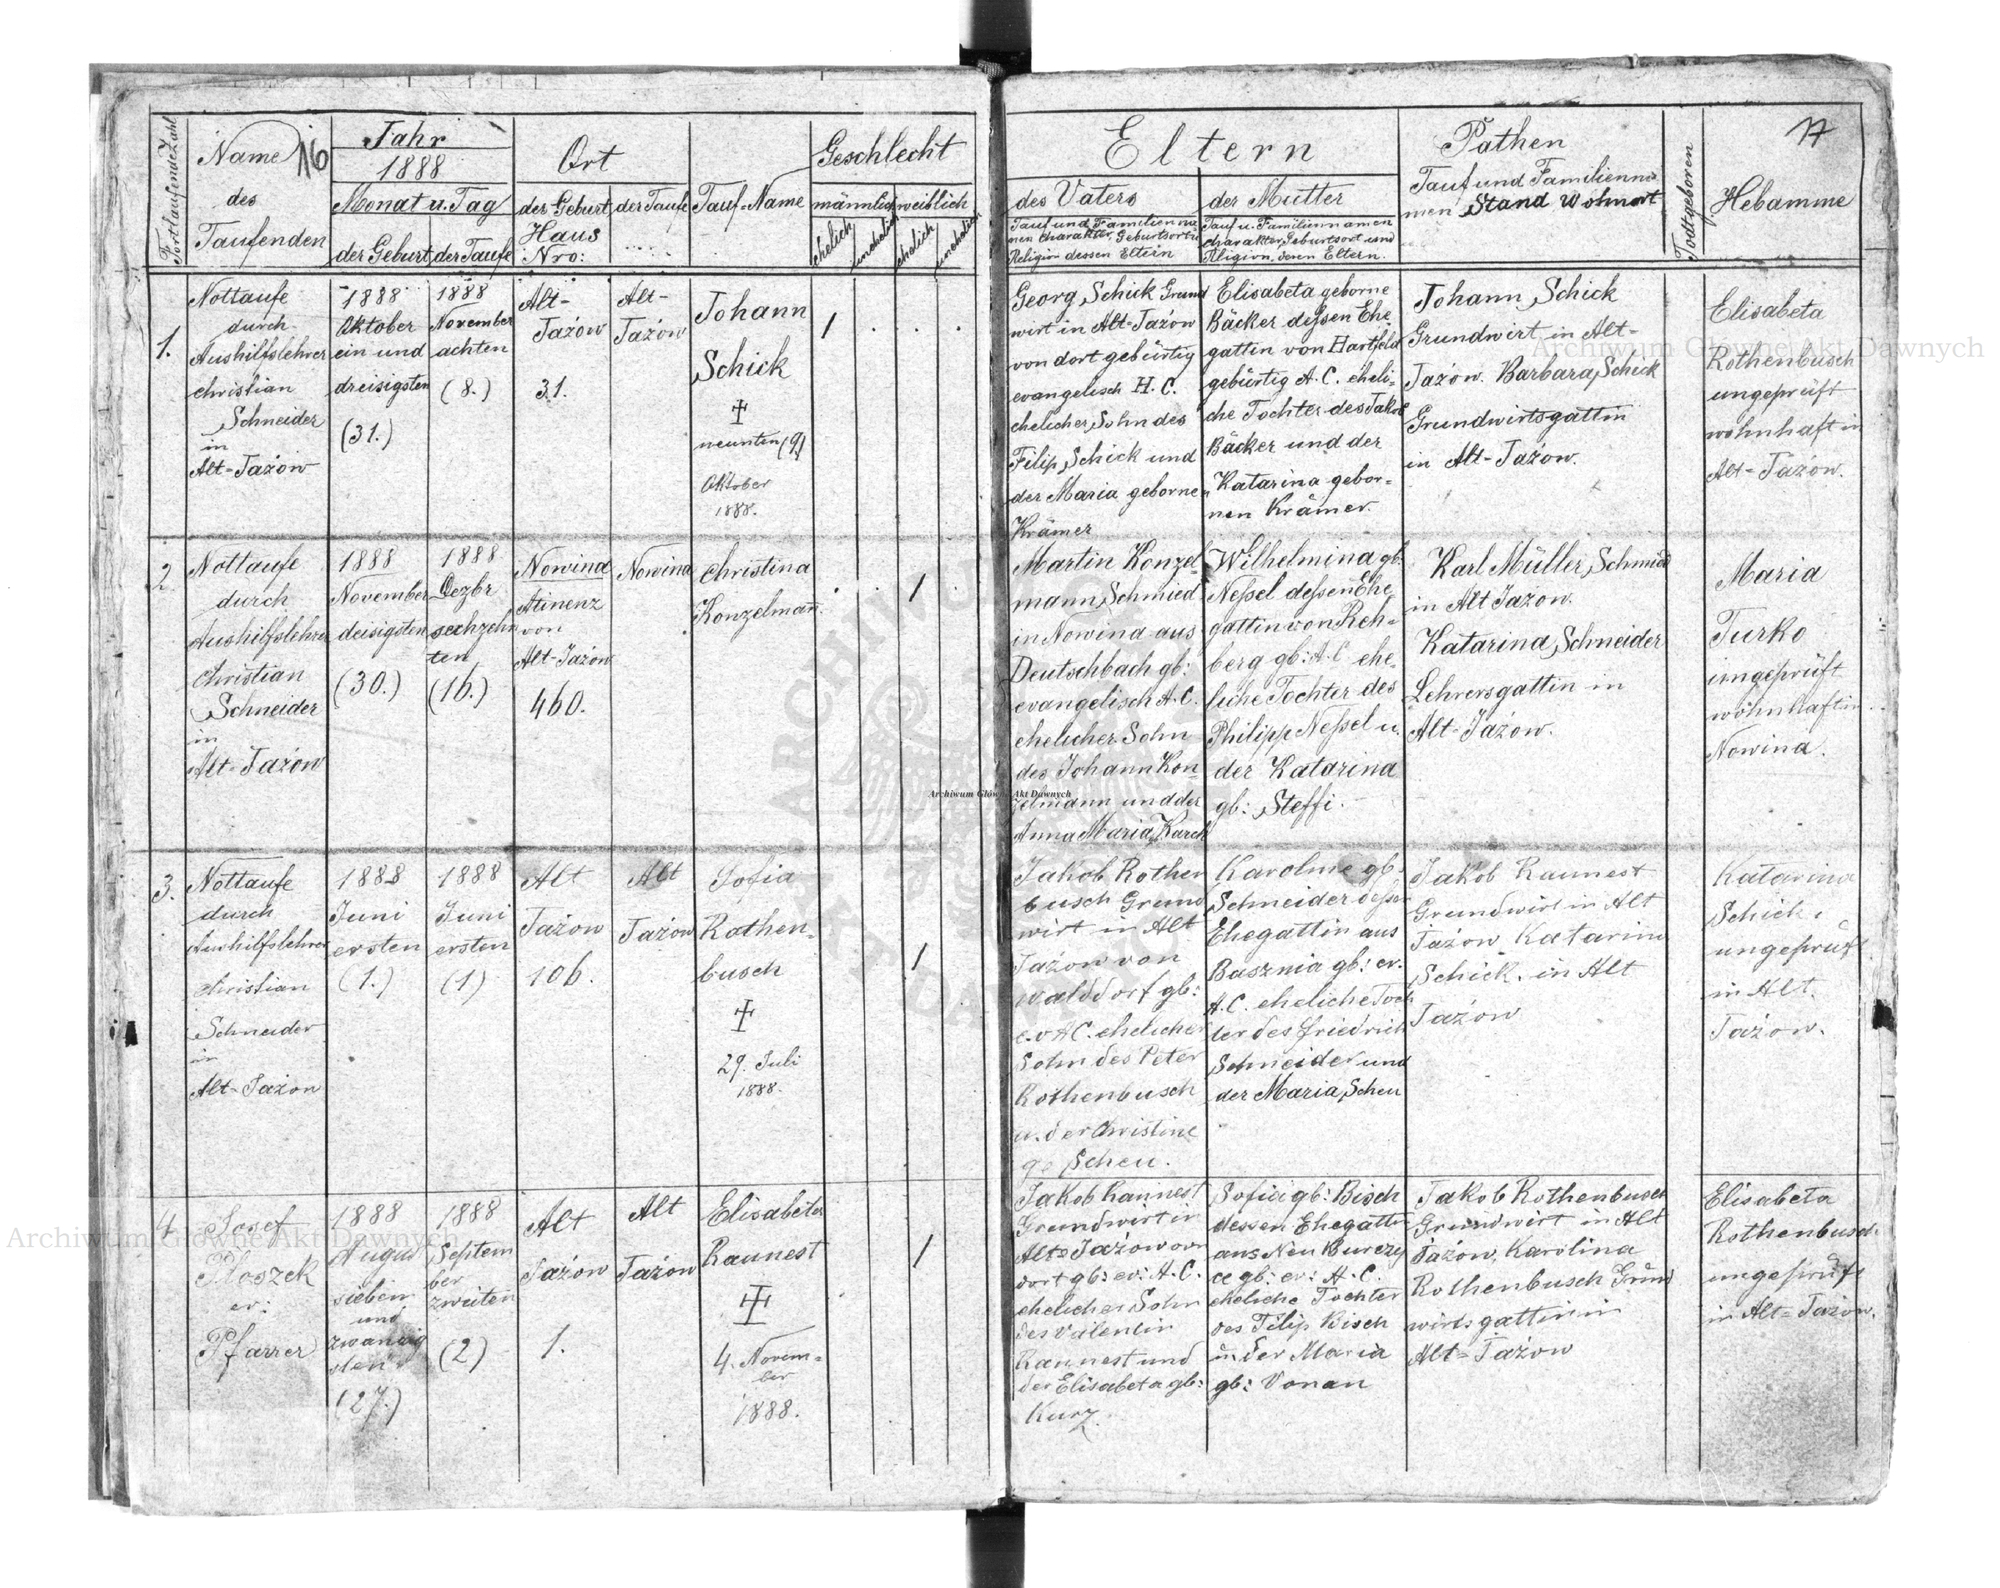 Fortlaufende Zahl
Name
des
Taufenden
16
Jahr
1888
Monat u. Tag
der Geburt
der Taufe
Ort
der Geburt
Haus
Nro:
der Taufe
Tauf-Name
Geschlecht
männlich
weiblich
ehelich
unehelich
ehelich
unehelich
Eltern
des Vaters
Tauf und Familienna-
men Charakter, Geburtsort u.
Religion dessen Eltern
der Mutter
Tauf u. Familiennamen
charakter, Geburtsort und
Religion, deren Eltern.
Pathen
Tauf und Familienna
men Stand Wohnort
Todtgeboren
17
Hebamme
1.
Nottaufe
durch
Aushilfslehrer
christian
Schneider
in
Alt-Jażow
1888
Oktober
ein und
dreisigsten
(31.)
1888
November
achten
(8.)
Alt-
Jażow
31.
Alt-
Jażow
Johann
Schick
neunten (9)
Oktober
1888.
Georg Schick Grund
wirt in Alt-Jażow
von dort gebürtig
evangelisch H. C.
ehelicher Sohn des
Filip Schick und
der Maria geborne
Krämer
Elisabeta geborne
Bäcker dessen Ehe
gattin von Hartfeld
gebürtig A. C. eheli-
che Tochter des Jakob
Bäcker und der
Katarina gebor-
nen Krämer.
Johann Schick
Grundwirt in Alt-
Jażow. Barbara Schick
Grundwirtsgattin
in Alt-Jażow.
Elisabeta
Rothenbusch
ungeprüft
wohnhaft in
Alt-Jażow.
2.
Nottaufe
durch
Aushilfslehrer
Christian
Schneider
in
Alt-Jażow
1888
November
deisigsten
(30.)
1888
Dezbr
sechzehn
ten
(16.)
Nowina
Atinenz
von
Alt-Jażow
460.
Nowina
christina
Konzelmann.
Martin Konzel-
mann Schmied
in Nowina aus
Deutschbach gb:
evangelisch A. C.
ehelicher Sohn
des Johann Kon-
zelmann und der
Anna Maria Karch
Wilhelmina gb:
Neßel deßen Ehe
gattin von Reh-
berg gb: A. C. ehe-
liche Tochter des
Philipp Neßel u.
der Katarina
gb: Steffi.
Karl Müller Schmied
in Alt Jażow.
Katarina Schneider
Lehrersgattin in
Alt-Jażow.
Maria
Turko
ungeprüft
wohnhaft in
Nowina.
3.
Nottaufe
durch
Aushilfslehrer
christian
Schneider
in
Alt-Jażow
1888
Juni
ersten
(1.)
1888
Juni
ersten
(1)
Alt
Jażow
106.
Alt
Jażow
Sofia
Rothen-
busch
29. Juli
1888.
Jakob Rothen
busch Grund
wirt in Alt
Jażow von
Walddorf gb:
ev AC. ehelicher
Sohn des Peter
Rothenbusch
u. der Christine
gb Scheu.
Karoline gb:
Schneider deßen
Ehegattin aus
Basznia gb: ev.
A. C. eheliche Toch
ter des Friedrich
Schneider und
der Maria Scheu
Jakob Raunest
Grundwirt in Alt
Jażow Katarina
Schick. in Alt
Jażow
Katarina
Schick.
ungeprüft
in Alt.
Jażow.
4.
Josef
Ploszek
ev:
Pfarrer
1888
August
sieben
und
zwanzig
sten
(27.)
1888
Septem
ber
zweiten
(2)
Alt
Jażow
1.
Alt
Jażow
Elisabeta
Raunest
4. Novem-
ber
1888.
Jakob Raunest
Grundwirt in
Alt-Jażow von
dort gb: ev: A. C.
ehelicher Sohn
des Valentin
Raunest und
der Elisabeta gb:
Kurz.
Sofia gb: Bisch
dessen Ehegattin
aus Neu Burczy
ce gb: ev: A. C.
eheliche Tochter
des Filip Bisch
u. der Maria
gb: Vonan
Jakob Rothenbusch
Grundwirt in Alt
Jażow, Karolina
Rothenbusch Grund
wirtsgattin in
Alt-Jażow
Elisabeta
Rothenbusch
ungeprüft
in Alt-Jażow.
Archiwum Główne Akt Dawnych
Archiwum Główne Akt Dawnych
Archiwum Główne Akt Dawnych